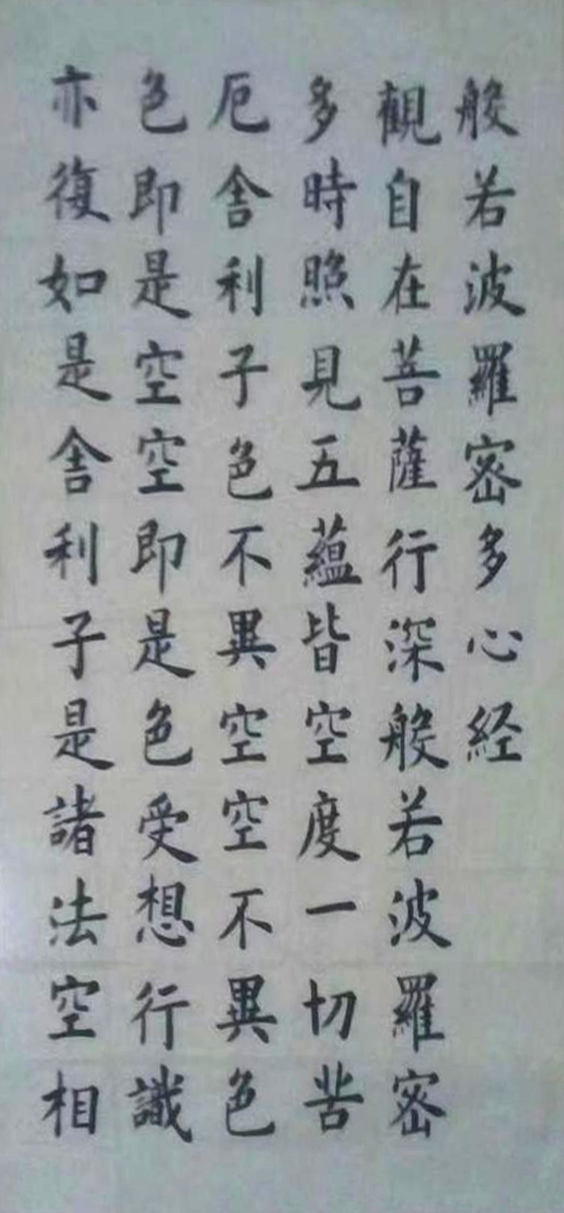 般若波羅密多心経
觀自在菩薩行深般若波羅密
多時照見五蘊皆空度一切苦
厄舎利子色不異空空不異色
色即是空空即是色受想行識
亦復如是舎利子是諸法空相